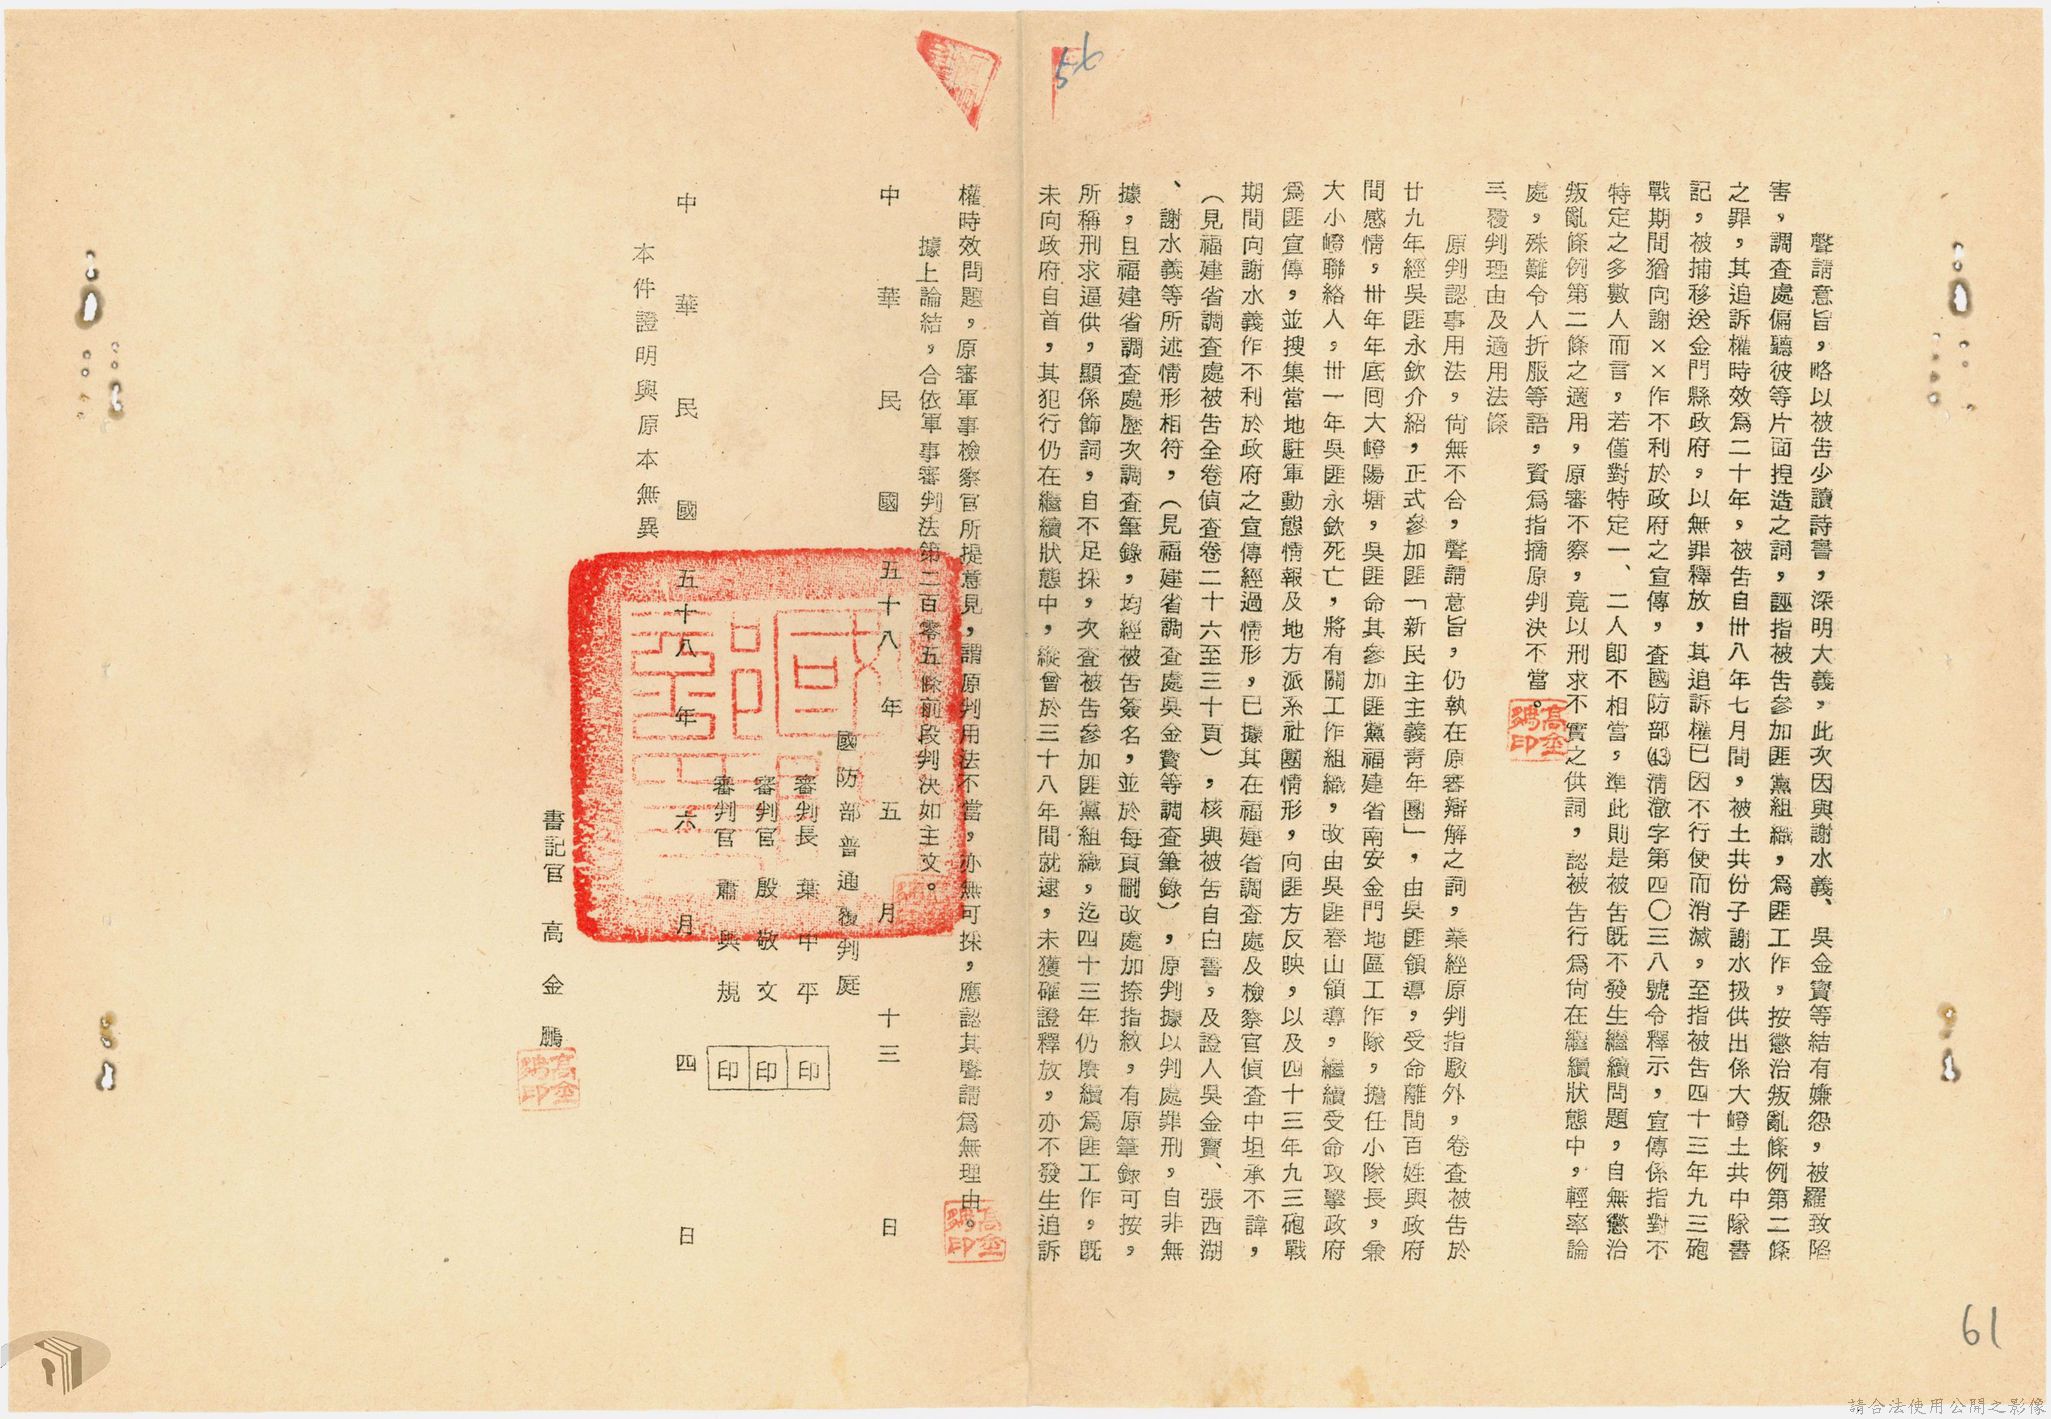 56
聲請意旨，略以被告少讀詩書，深明大義，此次因與謝水義、吳金寶等結有嫌怨，被羅致陷
害，調查處偏聽彼等片面揑造之詞，誣指被告參加匪黨組織，爲匪工作，按懲治叛亂條例第二條
之罪，其追訴權時效爲二十年，被告自卅八年七月間，被土共份子謝水扱供出係大嶝土共中隊書
記，被捕移送金門縣政府，以無罪釋放，其追訴權已因不行使而消滅，至指被告四十三年九三砲
戰期間猶向謝××作不利於政府之宣傳，查國防部(43)清澈字第四〇三八號令釋示，宣傳係指對不
特定之多數人而言，若僅對特定一、二人卽不相當，準此則是被告既不發生繼續問題，自無懲治
叛亂條例第二條之適用，原審不察，竟以刑求不實之供詞，認被告行爲尙在繼續狀態中，輕率論
處，殊難令人折服等語，資爲指摘原判決不當。
三、覆判理由及適用法條
原判認事用法，尙無不合，聲請意旨，仍執在原審辯解之詞，業經原判指駁外，卷查被告於
廿九年經吳匪永欽介紹，正式參加匪「新民主主義靑年團」，由吳匪領導，受命離間百姓與政府
間感情，卅年年底囘大嶝陽塘，吳匪命其參加匪黨福建省南安金門地區工作隊，擔任小隊長，兼
大小嶝聯絡人，卅一年吳匪永欽死亡，將有關工作組織，改由吳匪春山領導，繼續受命攻擊政府
爲匪宣傳，並搜集當地駐軍動態情報及地方派系社團情形，向匪方反映，以及四十三年九三砲戰
期間向謝水義作不利於政府之宣傳經過情形，已據其在福建省調查處及檢察官偵查中坦承不諱，
（見福建省調查處被告全卷偵查卷二十六至三十頁），核與被告自白書，及證人吳金寶、張西湖
、謝水義等所述情形相符，（見福建省調查處吳金寶等調查筆錄），原判據以判處罪刑，自非無
據，且福建省調查處歷次調查筆錄，均經被告簽名，並於每頁刪改處加捺指紋，有原筆錄可按，
所稱刑求逼供，顯係飾詞，自不足採，次查被告參加匪黨組織，迄四十三年仍賡續爲匪工作，既
未向政府自首，其犯行仍在繼續狀態中，縱曾於三十八年間就逮，未獲確證釋放，亦不發生追訴
權時效問題，原審軍事檢察官所提意見，謂原判用法不當，亦無可採，應認其聲請爲無理由。
據上論結，合依軍事審判法第二百零五條前段判決如主文。
中華民國五十八年五月十三日
國防部普通覆判庭
審判長 葉中平 印
審判官 殷敬文 印
審判官 肅與規 印
中華民國五十八年六月四日
本件證明與原本無異
書記官 高金鵬
61
請合法使用公開之影像